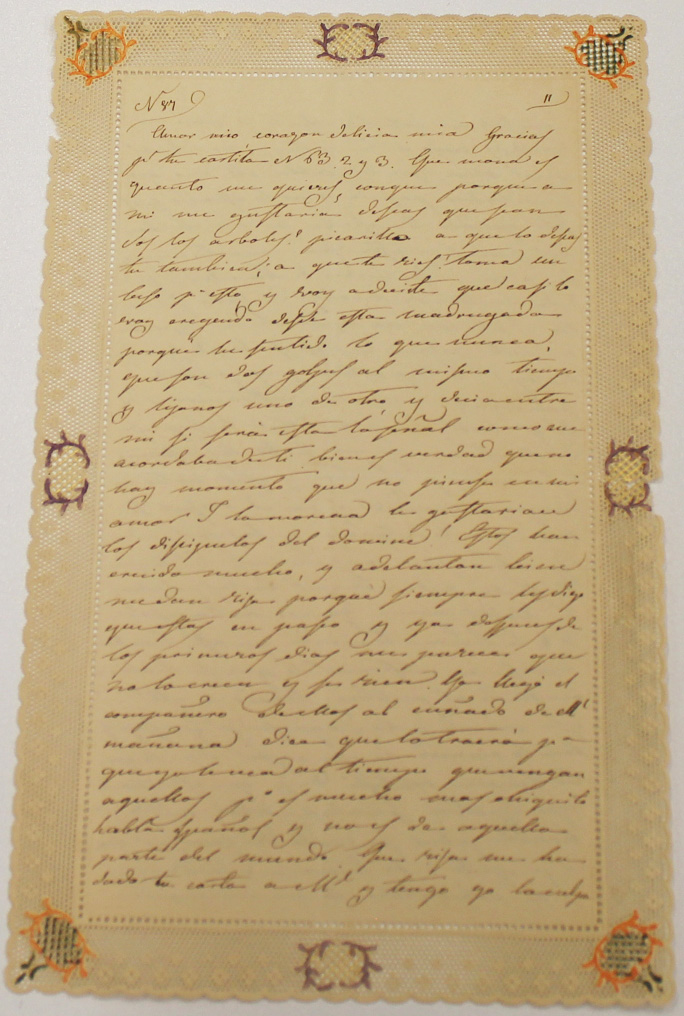 N 87 11
Amor mio corazon delicia mia Gracias
pr tu cartita N 63. 2 y 3. Que mona es
quanto me quieres, conque porque a
mi me gustaria deseas que sean
dos los arboles? picarilla a que lo deseas
tu tambien; a que te ries? toma un
beso pr esto, y voy a decirte que casi lo
voy creyendo desde esta madrugada
porque he sentido lo que nunca,
que son dos golpes al mismo tiempo
y lejanos uno de otro y decia entre
mi si será esta la señal como me
acordaba de ti bien es verdad que no
hay momento que no piense en mi
amor Y la morena le gustarian
los discipulos del domine! Estos han
crecido mucho, y adelantan bien
me dan risa porque siempre les digo
que estas en paso y ya despues de
los primeros dias me parece que
no lo creen y se rien. Ya llegó el
compañero de ellos al cuñado de Md
mañana dice que lo traerá pa
que yo le vea al tiempo que vengan
aquellos pr es mucho mas chiquito
habla Español y no es de aquella
parte del mundo. Que risa me ha
dado tu carta a Md y tengo yo la culpa